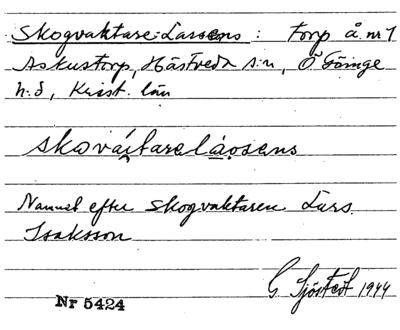 Skogvaktare-Larsens: torp å nr 1
Askustorp, Hästveda s:n, Ö. Göinge
h:d, Krist. län
skováktareláosens
Namnet efter skogvaktaren Lars
Isaksson
G. Sjöstedt 1944
Nr 5424